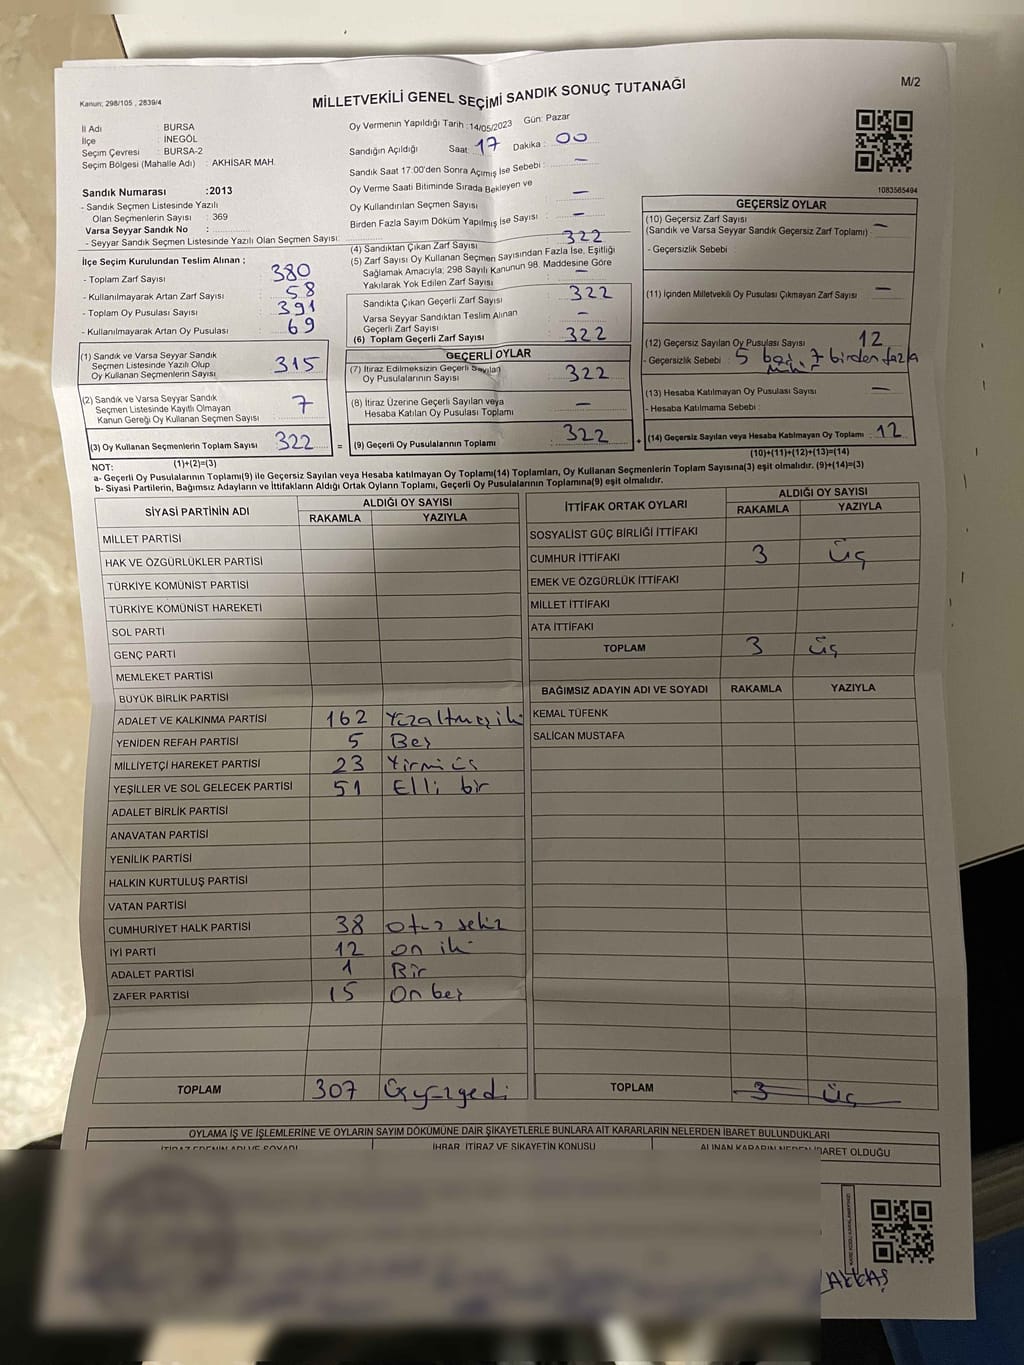 Kanun; 298/105 , 2839/4
MİLLETVEKİLİ GENEL SEÇİMİ SANDIK SONUÇ TUTANAĞI
M/2
İl Adı : BURSA
İlçe : İNEGÖL
Seçim Çevresi : BURSA-2
Seçim Bölgesi (Mahalle Adı) : AKHİSAR MAH.
Sandık Numarası :2013
- Sandık Seçmen Listesinde Yazılı
Olan Seçmenlerin Sayısı : 369
Varsa Seyyar Sandık No :
- Seyyar Sandık Seçmen Listesinde Yazılı Olan Seçmen Sayısı:
İlçe Seçim Kurulundan Teslim Alınan ;
- Toplam Zarf Sayısı : 380
- Kullanılmayarak Artan Zarf Sayısı : 58
- Toplam Oy Pusulası Sayısı : 391
- Kullanılmayarak Artan Oy Pusulası : 69
(1) Sandık ve Varsa Seyyar Sandık
Seçmen Listesinde Yazılı Olup
Oy Kullanan Seçmenlerin Sayısı 315
(2) Sandık ve Varsa Seyyar Sandık
Seçmen Listesinde Kayıtlı Olmayan
Kanun Gereği Oy Kullanan Seçmen Sayısı 7
(3) Oy Kullanan Seçmenlerin Toplam Sayısı 322
(1)+(2)=(3)
Oy Vermenin Yapıldığı Tarih :14/05/2023 Gün: Pazar
Sandığın Açıldığı Saat 17 Dakika : 00
Sandık Saat 17:00'den Sonra Açımış İse Sebebi : –
Oy Verme Saati Bitiminde Sırada Bekleyen ve
Oy Kullandırılan Seçmen Sayısı : –
Birden Fazla Sayım Döküm Yapılmış İse Sayısı : –
(4) Sandıktan Çıkan Zarf Sayısı 322
(5) Zarf Sayısı Oy Kullanan Seçmen Sayısından Fazla İse, Eşitliği
Sağlamak Amacıyla; 298 Sayılı Kanunun 98. Maddesine Göre
Yakılarak Yok Edilen Zarf Sayısı : –
Sandıkta Çıkan Geçerli Zarf Sayısı : 322
Varsa Seyyar Sandıktan Teslim Alınan
Geçerli Zarf Sayısı : –
(6) Toplam Geçerli Zarf Sayısı : 322
GEÇERLİ OYLAR
(7) İtiraz Edilmeksizin Geçerli Sayılan
Oy Pusulalarının Sayısı : 322
(8) İtiraz Üzerine Geçerli Sayılan veya
Hesaba Katılan Oy Pusulası Toplamı : –
= (9) Geçerli Oy Pusulalarının Toplamı : 322
1083565494
GEÇERSİZ OYLAR
(10) Geçersiz Zarf Sayısı
(Sandık ve Varsa Seyyar Sandık Geçersiz Zarf Toplamı) : –
- Geçersizlik Sebebi :
(11) İçinden Milletvekili Oy Pusulası Çıkmayan Zarf Sayısı : –
(12) Geçersiz Sayılan Oy Pusulası Sayısı : 12
- Geçersizlik Sebebi : 5 7 birden fazla
(13) Hesaba Katılmayan Oy Pusulası Sayısı : –
- Hesaba Katılmama Sebebi :
+ (14) Geçersiz Sayılan veya Hesaba Katılmayan Oy Toplamı : 12
(10)+(11)+(12)+(13)=(14)
NOT:
a- Geçerli Oy Pusulalarının Toplamı(9) ile Geçersiz Sayılan veya Hesaba katılmayan Oy Toplamı(14) Toplamları, Oy Kullanan Seçmenlerin Toplam Sayısına(3) eşit olmalıdır. (9)+(14)=(3)
b- Siyasi Partilerin, Bağımsız Adayların ve İttifakların Aldığı Ortak Oyların Toplamı, Geçerli Oy Pusulalarının Toplamına(9) eşit olmalıdır.
SİYASİ PARTİNİN ADI ALDIĞI OY SAYISI
RAKAMLA YAZIYLA
MİLLET PARTİSİ
HAK VE ÖZGÜRLÜKLER PARTİSİ
TÜRKİYE KOMÜNİST PARTİSİ
TÜRKİYE KOMÜNİST HAREKETİ
SOL PARTİ
GENÇ PARTİ
MEMLEKET PARTİSİ
BÜYÜK BİRLİK PARTİSİ
ADALET VE KALKINMA PARTİSİ 162 Yüzaltmışiki
YENİDEN REFAH PARTİSİ 5 Beş
MİLLİYETÇİ HAREKET PARTİSİ 23 Yirmi üç
YEŞİLLER VE SOL GELECEK PARTİSİ 51 Elli bir
ADALET BİRLİK PARTİSİ
ANAVATAN PARTİSİ
YENİLİK PARTİSİ
HALKIN KURTULUŞ PARTİSİ
VATAN PARTİSİ
CUMHURİYET HALK PARTİSİ 38 otuz sekiz
İYİ PARTİ 12 on iki
ADALET PARTİSİ 1 Bir
ZAFER PARTİSİ 15 On beş
TOPLAM 307 Üçyüzyedi
İTTİFAK ORTAK OYLARI ALDIĞI OY SAYISI
RAKAMLA YAZIYLA
SOSYALİST GÜÇ BİRLİĞİ İTTİFAKI
CUMHUR İTTİFAKI 3 Üç
EMEK VE ÖZGÜRLÜK İTTİFAKI
MİLLET İTTİFAKI
ATA İTTİFAKI
TOPLAM 3 Üç
BAĞIMSIZ ADAYIN ADI VE SOYADI RAKAMLA YAZIYLA
KEMAL TÜFENK
SALİCAN MUSTAFA
TOPLAM 3 Üç
OYLAMA İŞ VE İŞLEMLERİNE VE OYLARIN SAYIM DÖKÜMÜNE DAİR ŞİKAYETLERLE BUNLARA AİT KARARLARIN NELERDEN İBARET BULUNDUKLARI
İTİRAZ EDENİN ADI VE SOYADI İHBAR, İTİRAZ VE ŞİKAYETİN KONUSU ALINAN KARARIN NEDEN İBARET OLDUĞU
AKKAŞ